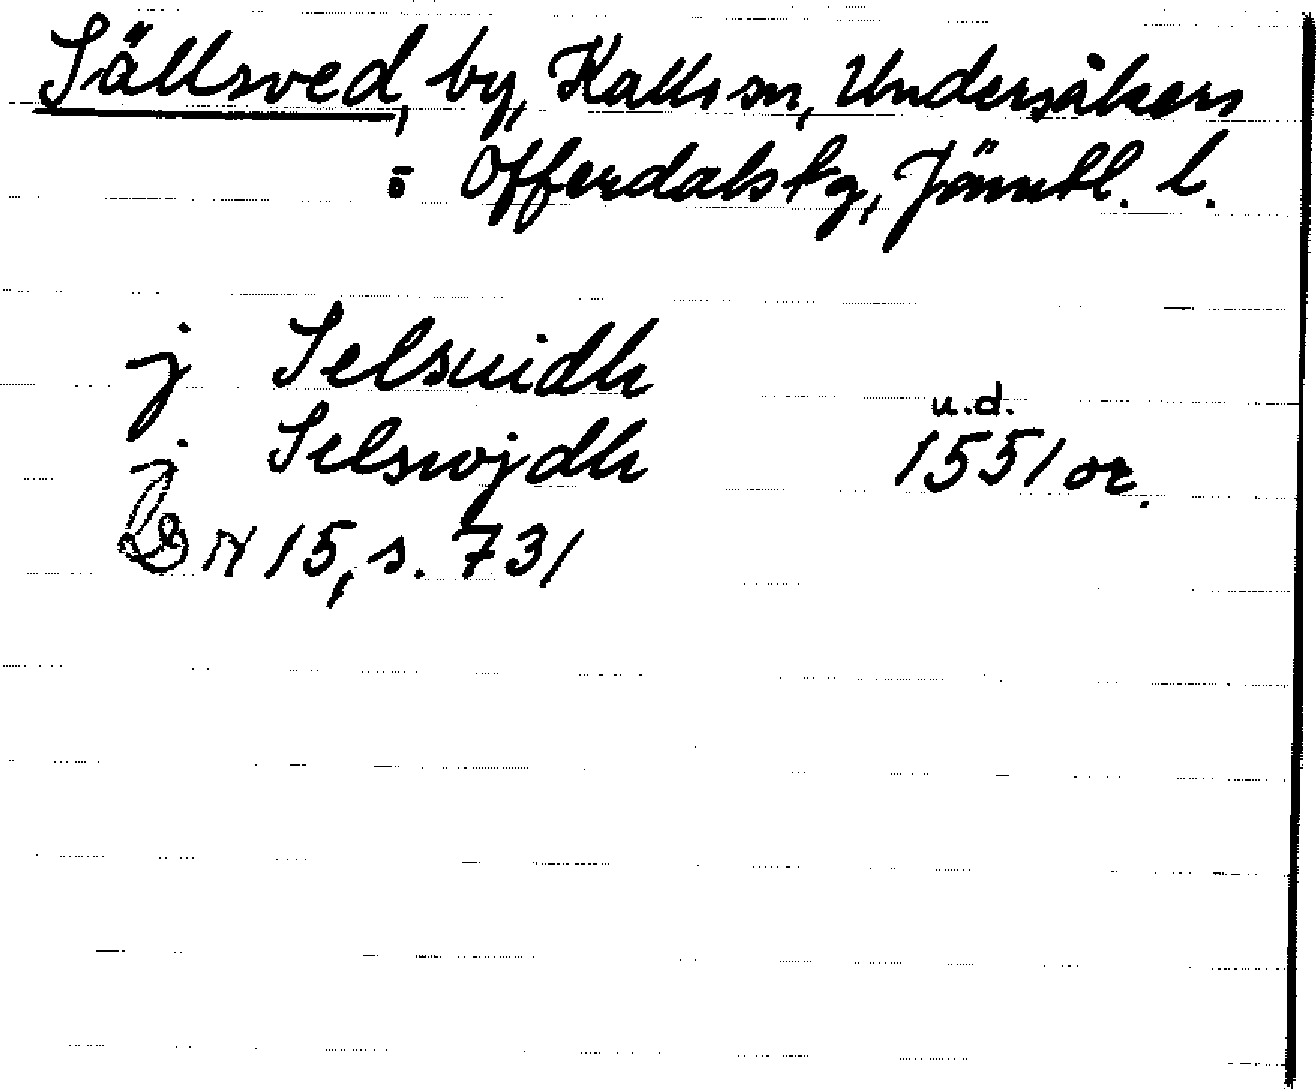 Sällsved, by, Kalls sn, Undersåkers
o Offerdals tg, Jämtl. l.
j Selsuidh
u.d.
j Selswjdh 1551 or.
DN 15, s. 731